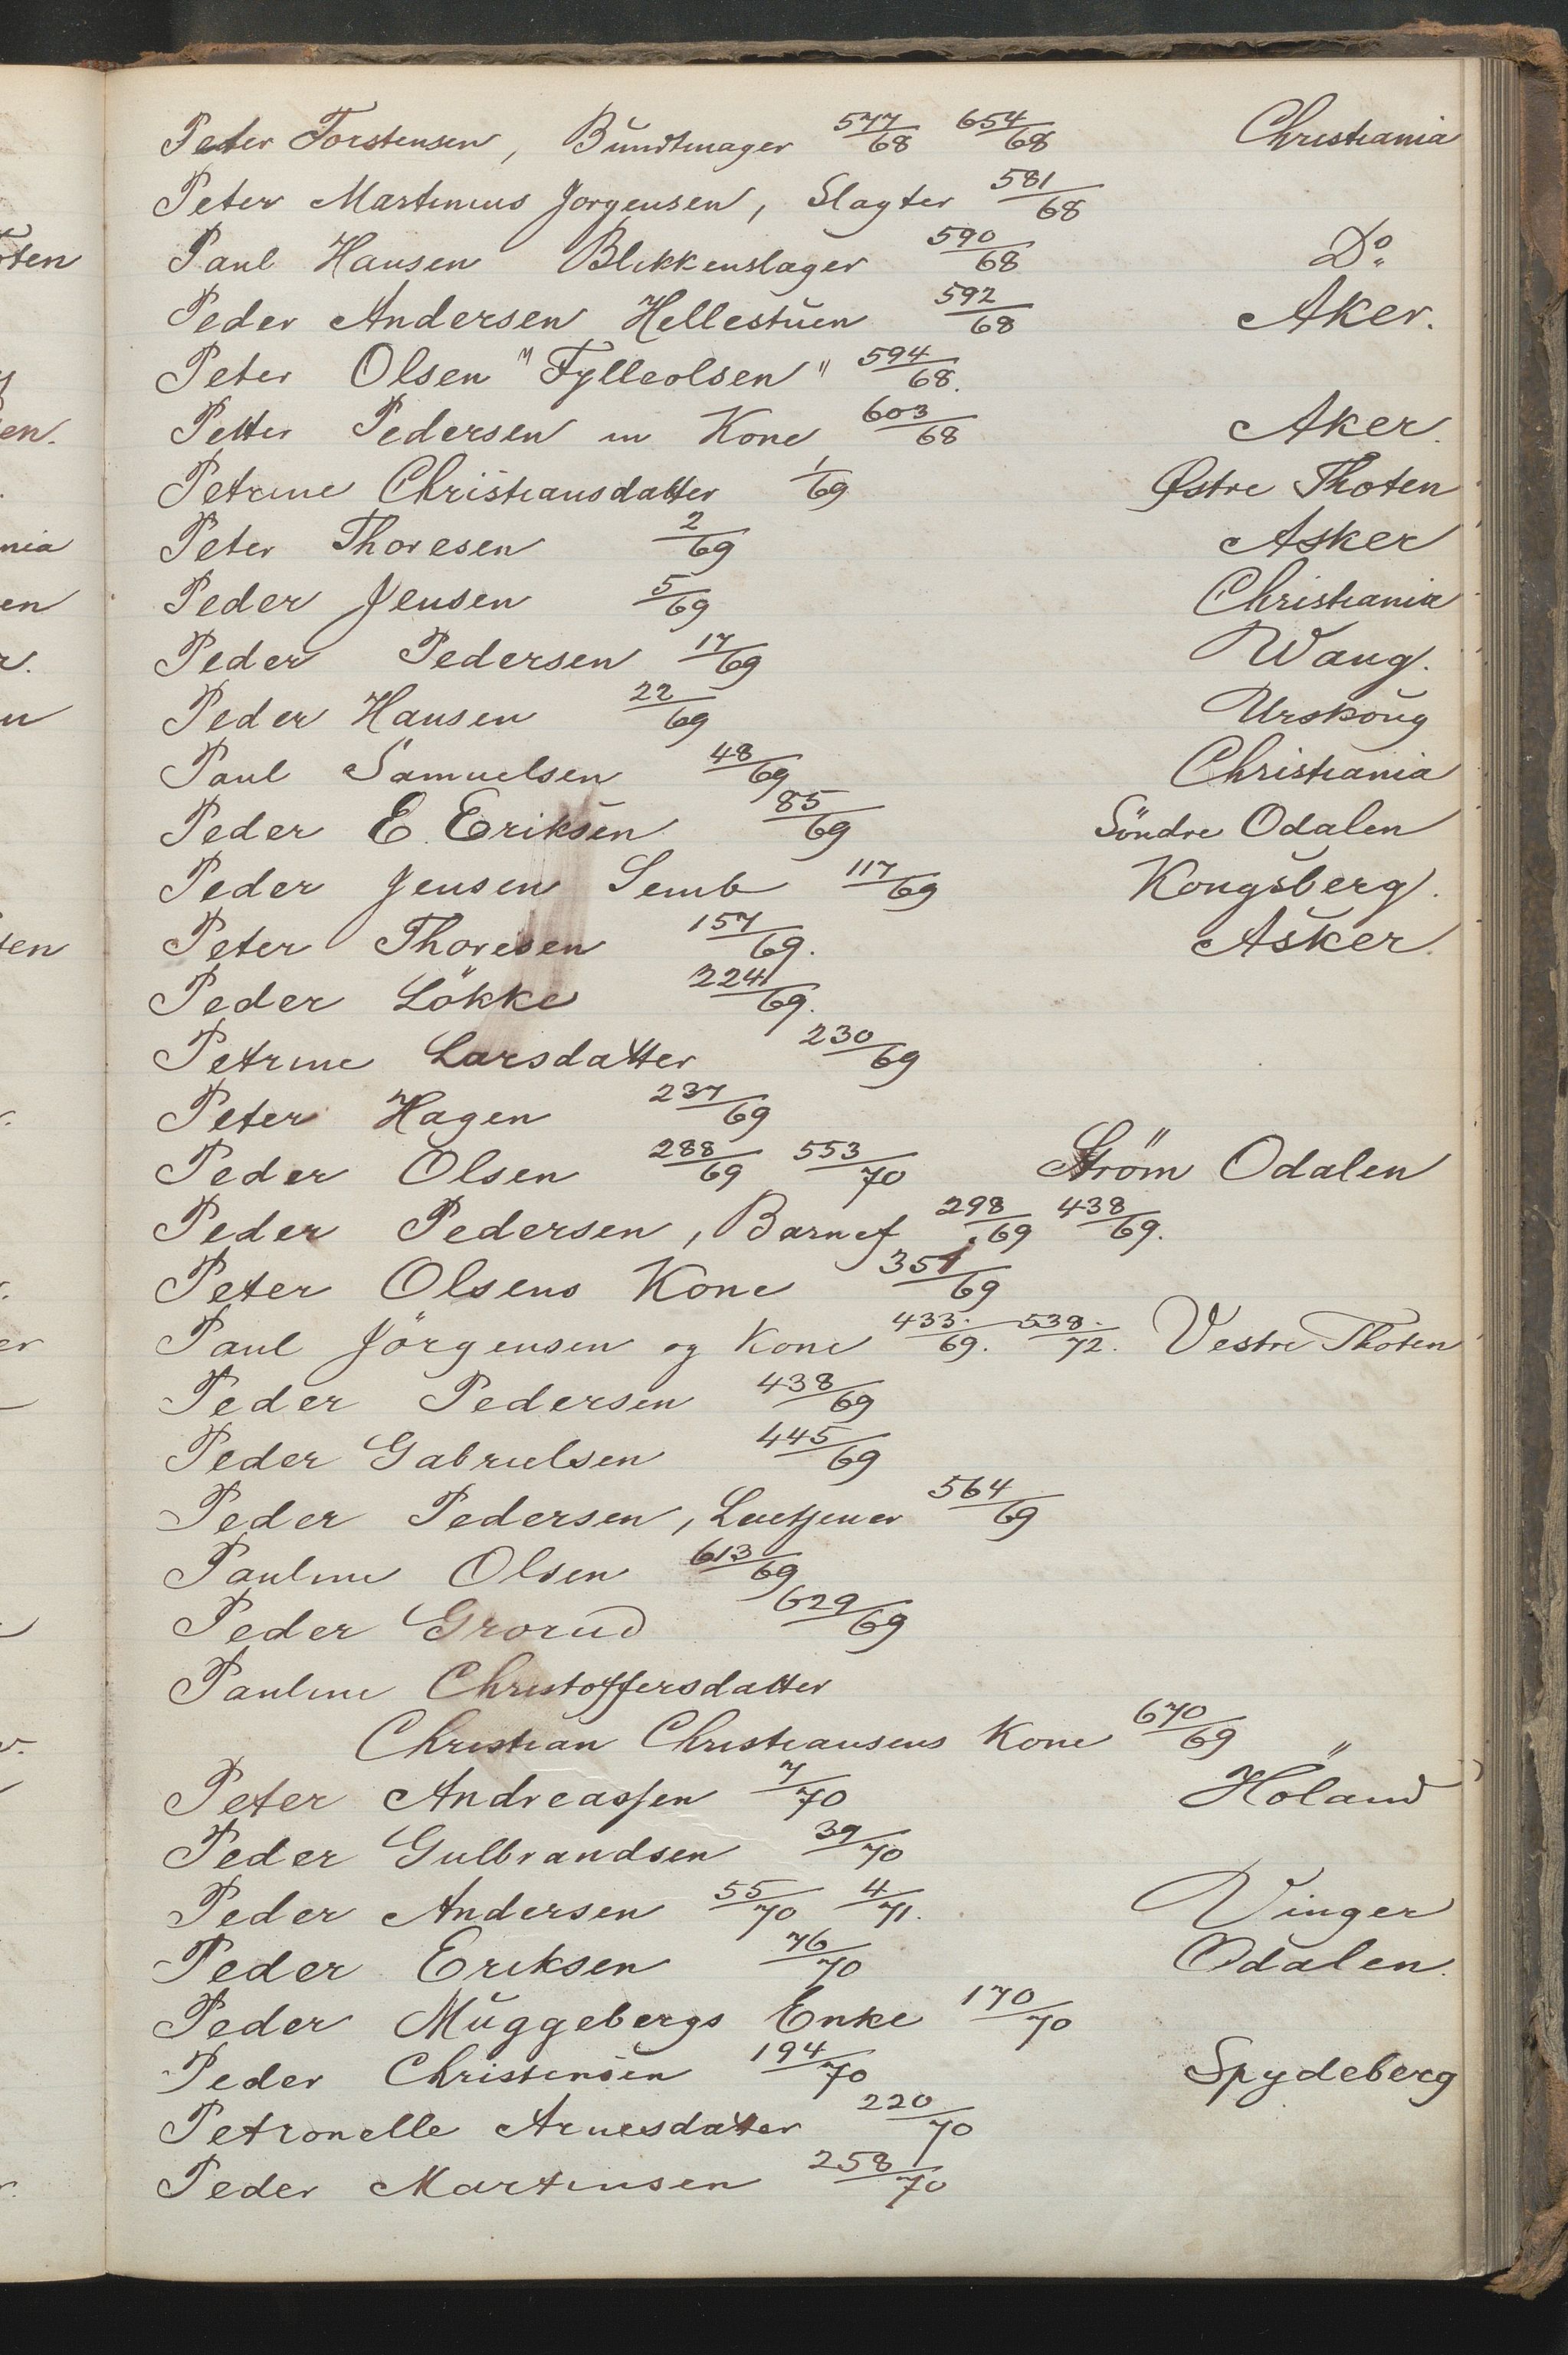 Peter Torstensen, Bundtmager 577/68 654/68 Christiania
Peter Martinius Jorgensen, Slagter 581/68
Paul Hansen Blikkenslager 590/68 Do.
Peder Andersen Hellestuen 592/68 Aker.
Peter Olsen "Fylleolsen" 594/68.
Petter Pedersen m Kone 603/68 Aker.
Petrine Christiansdatter 1/69 Østre Thoten
Peter Thoresen 2/69 Asker
Peder Jensen 5/69 Christiania
Peder Pedersen 17/69 Wang.
Peder Hansen 22/69 Urskoug
Paul Samuelsen 48/69 Christiania
Peder E. Eriksen 85/69 Söndre Odalen
Peder Jensen Semb 117/69 Kongsberg.
Peter Thoresen 157/69. Asker.
Peder Lökke 224/69.
Petrine Larsdatter 230/69
Peter Hagen 237/69
Peder Olsen 288/69 553/70 Ström Odalen
Peder Pedersen, Barnef 298/69 438/69.
Peter Olsens Kone 351/69
Paul Jörgensen og Kone 433./69. 538./72. Vestre Thoten
Peder Pedersen 438/69
Peder Gabrielsen 445/69
Peder Pedersen, 564/69
Pauline Olsen 613/69
Peder Grorud 629/69
Pauline Christoffersdatter
Christian Christiansens Kone 670/69
Peter Andreassen 7/70 Höland
Peder Gulbrandsen 39/70
Peder Andersen 55/70 4/71. Vinger
Peder Eriksen 76/70 Odalen.
Peder Muggebergs Enke 170/70
Peder Christensen 194/70 Spydeberg
Petronelle Arnesdatter 220/70
Peder Martinsen 258/70